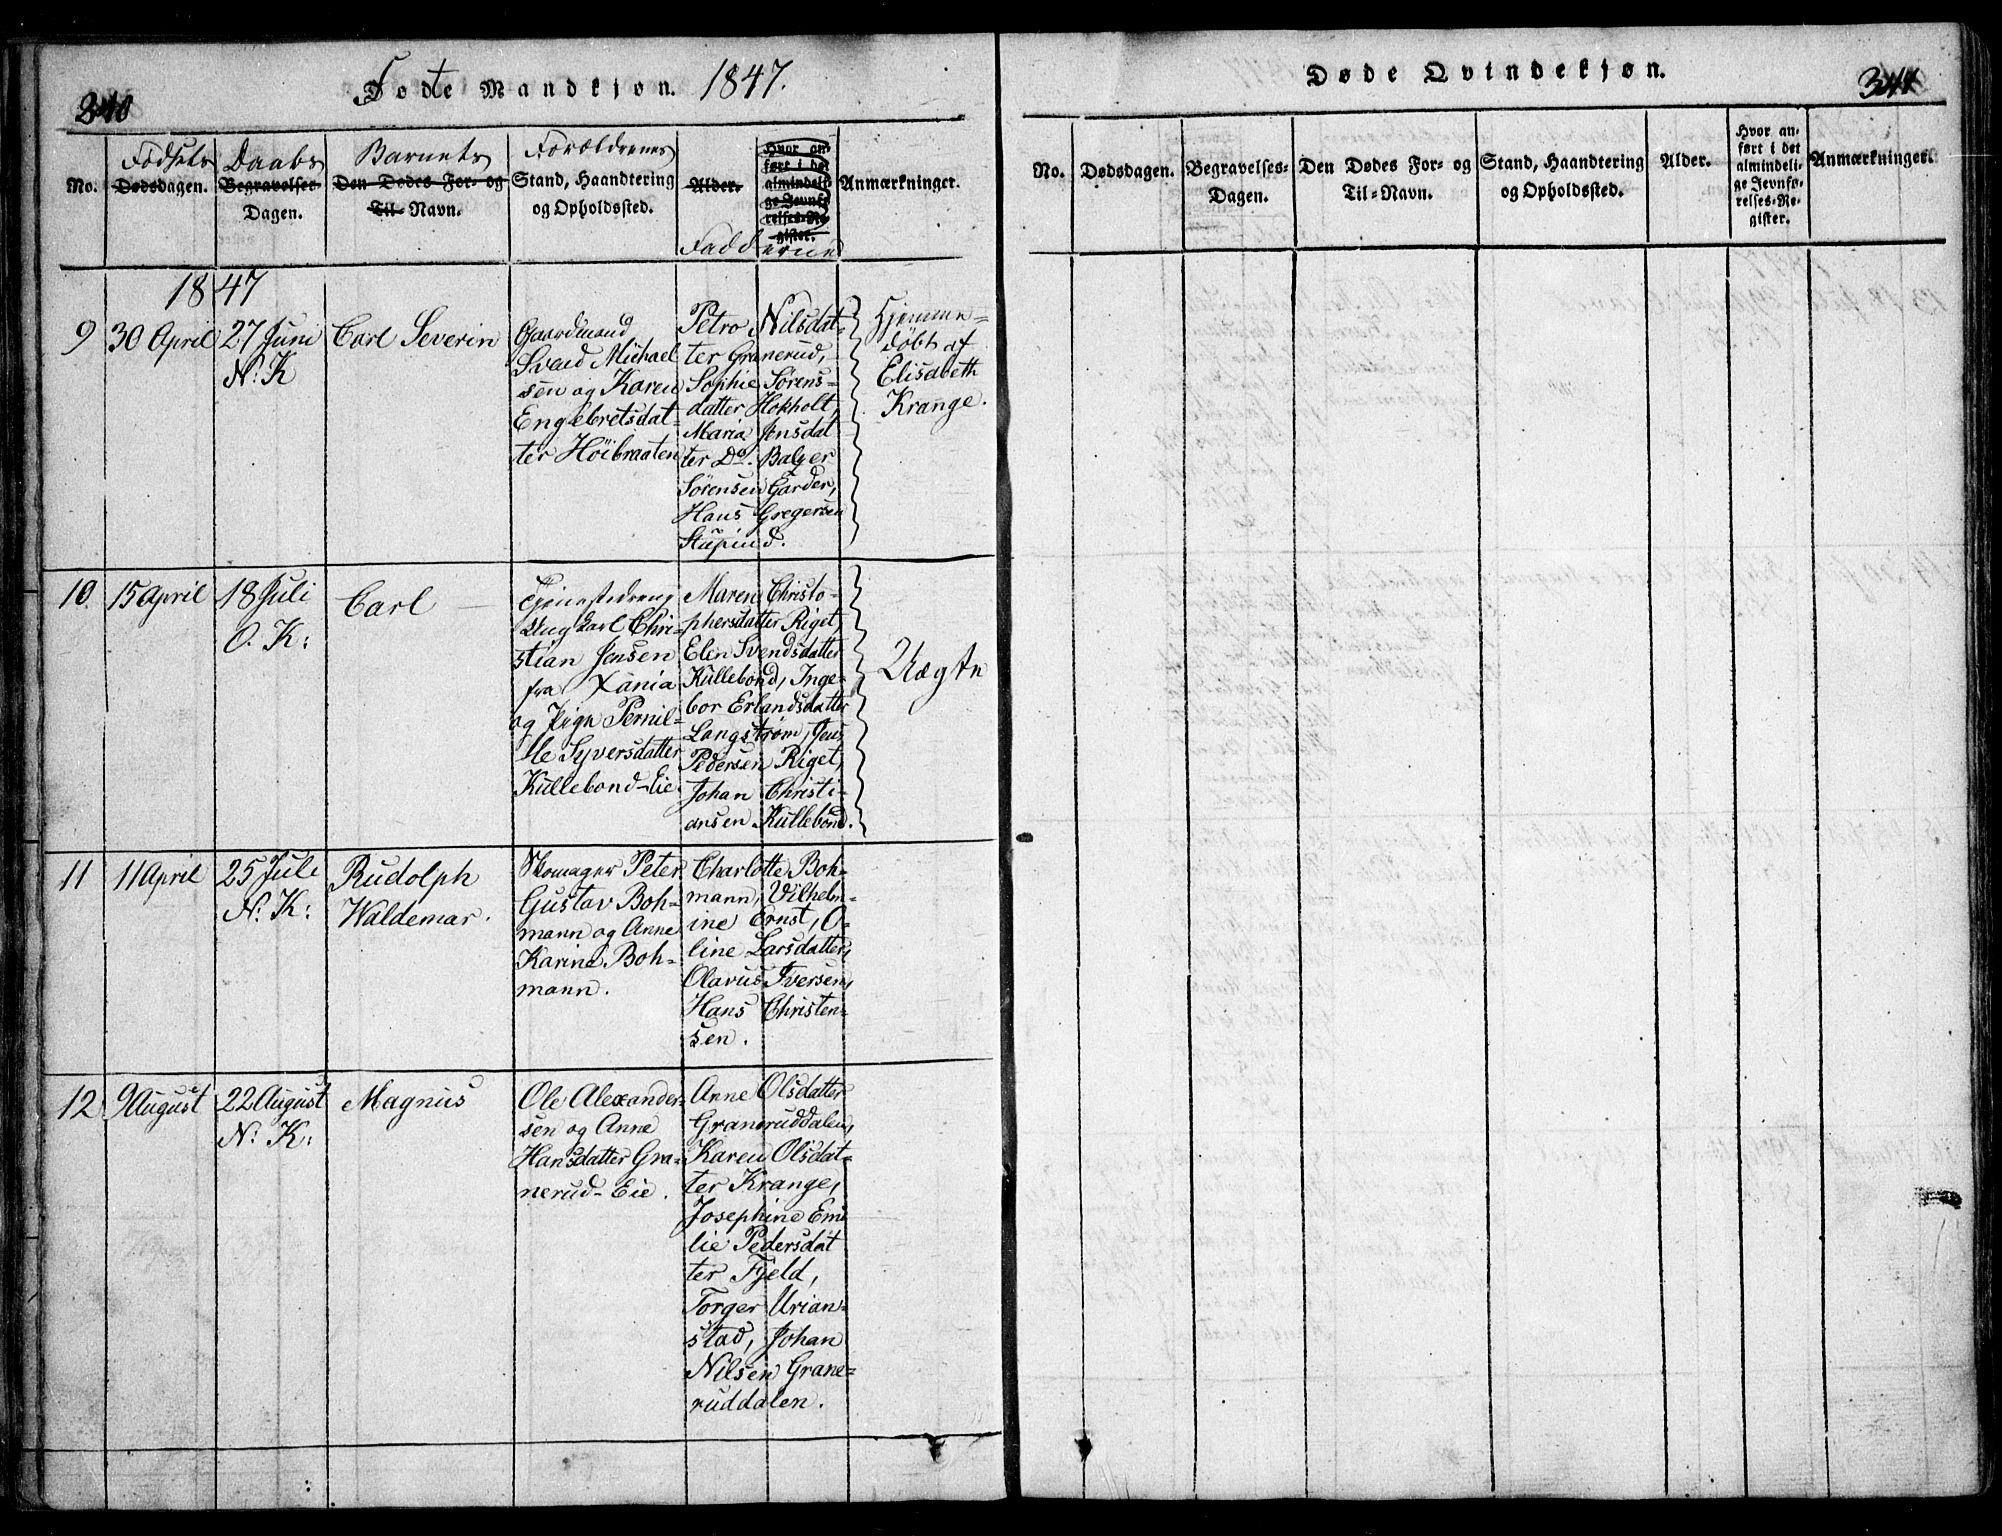 Fødte Mandkjøn. 1847.
No.
Fødsels
Dødsdagen.
Daabs
Begravelses
Dagen.
Barnets
Den Dødes For- og
Til-Navn.
Forældrenes
Stand, Haandtering
og Opholdssted.
Alder.
Hvor an-
ført i det
almindeli-
ge Jevnfø-
relses-Re-
gister.
Fadderne
Anmærkninger.
1847
9
30 April
27 Juni
N. K
Carl Severin
Gaardmand
Svend Michael
sen og Karen
Engebretsdat-
ter Höibraaten
Petro Nilsdat-
ter Granerud,
Sophie Sørens-
datter Hokholt,
Maria Jensdat
ter Do. Balzer
Sørensen Garder,
Hans Gregersen
Stüpind.
Hjemme-
döbt af
Elisabeth
Krange.
10.
15 April
18 Juli
O. K:
Carl
Tjenestedreng
Ung Carl Chri-
stian Jensen
fra Xania
og Pige Pernil-
le Syversdatter
Küllebond-Eie.
Maren Christo-
phersdatter Riget,
Elen Svendsdatter
Küllebond, Inge-
bor Erlandsdatter
Langström, Jens
Pedersen Riget,
Johan Christi-
ansen Küllebond.
Uægte
11
11 April
25 Juli
N. K:
Rudolph
Waldemar.
Skomager Peter
Gustav Boh-
mann og Anne
Karine Boh-
mann.
Charlotte Boh-
mann, Vilhelm-
ine Ernst, O-
line Larsdatter,
Olavus Iversen,
Hans Christen-
sen.
12
9 August
22 August
N. K:
Magnus
Ole Alexander-
sen og Anne
Hansdatter Gra-
nerud-Eie.
Anne Olsdatter
Graneruddalen,
Karen Olsdat-
ter Krange,
Josephine Emi
lie Pedersdat
ter Fjeld,
Torger Urian-
stad, Johan
Nilsen Grane-
ruddalen.
Døde Qvindekjøn.
No.
Dødsdagen.
Begravelses-
Dagen.
Den Dødes For- og
Til-Navn.
Stand, Haandtering
og Opholdssted.
Alder.
Hvor an-
ført i det
almindeli-
ge Jevnfø-
relses-Re-
gister.
Anmærkninger.